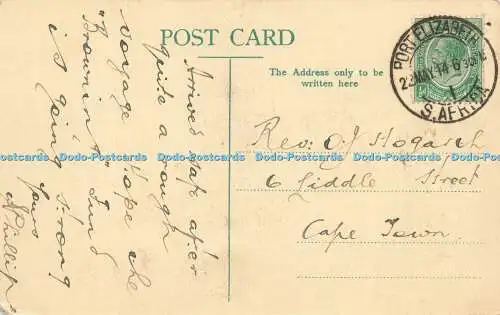 POST CARD
The Address only to be
written here
PORT ELIZABETH
22 MAY 14 6 30 PM
1
S. AFRICA
Arrived safe after
quite a rough
voyage Hope the
"Brownint" Fund
is going strong
Yours
Phillip
Rev. O J Hogarth
6 Liddle Street
Cape Town
Dodo-Postcards Dodo-Postcards Dodo-Postcards Dodo-Postcards Dodo-Postcards Dodo-Postcards Dodo-Postcards